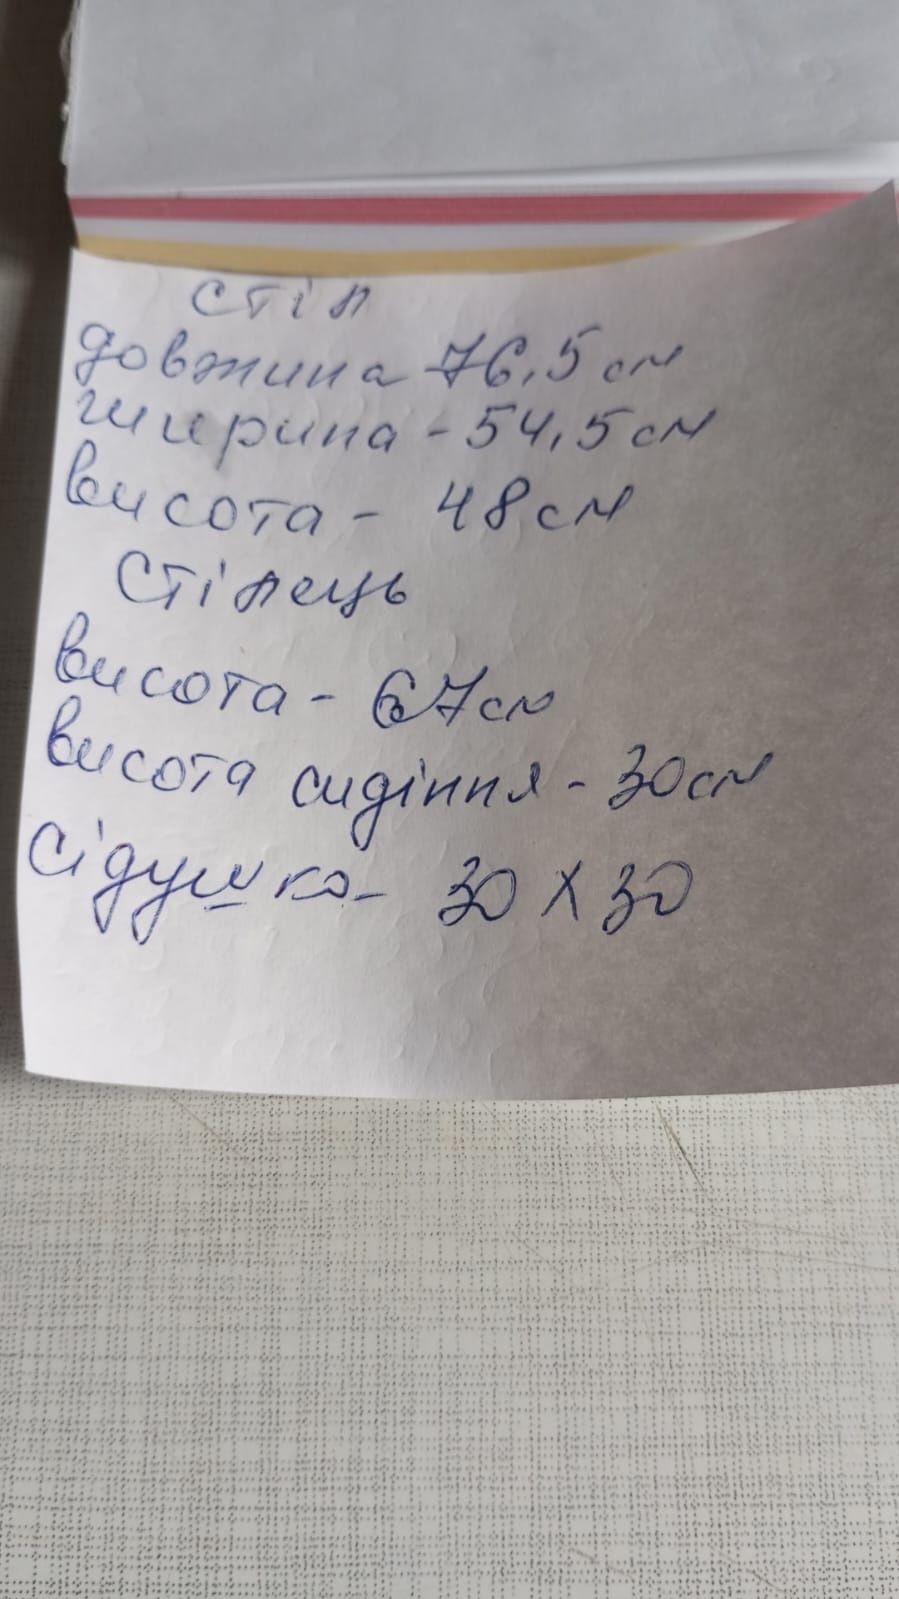 стіл
довжина 76,5 см
ширина - 54,5 см
висота - 48 см
Стілець
висота - 67 см
висота сидіння - 30 см
Сідушка - 30 х 30